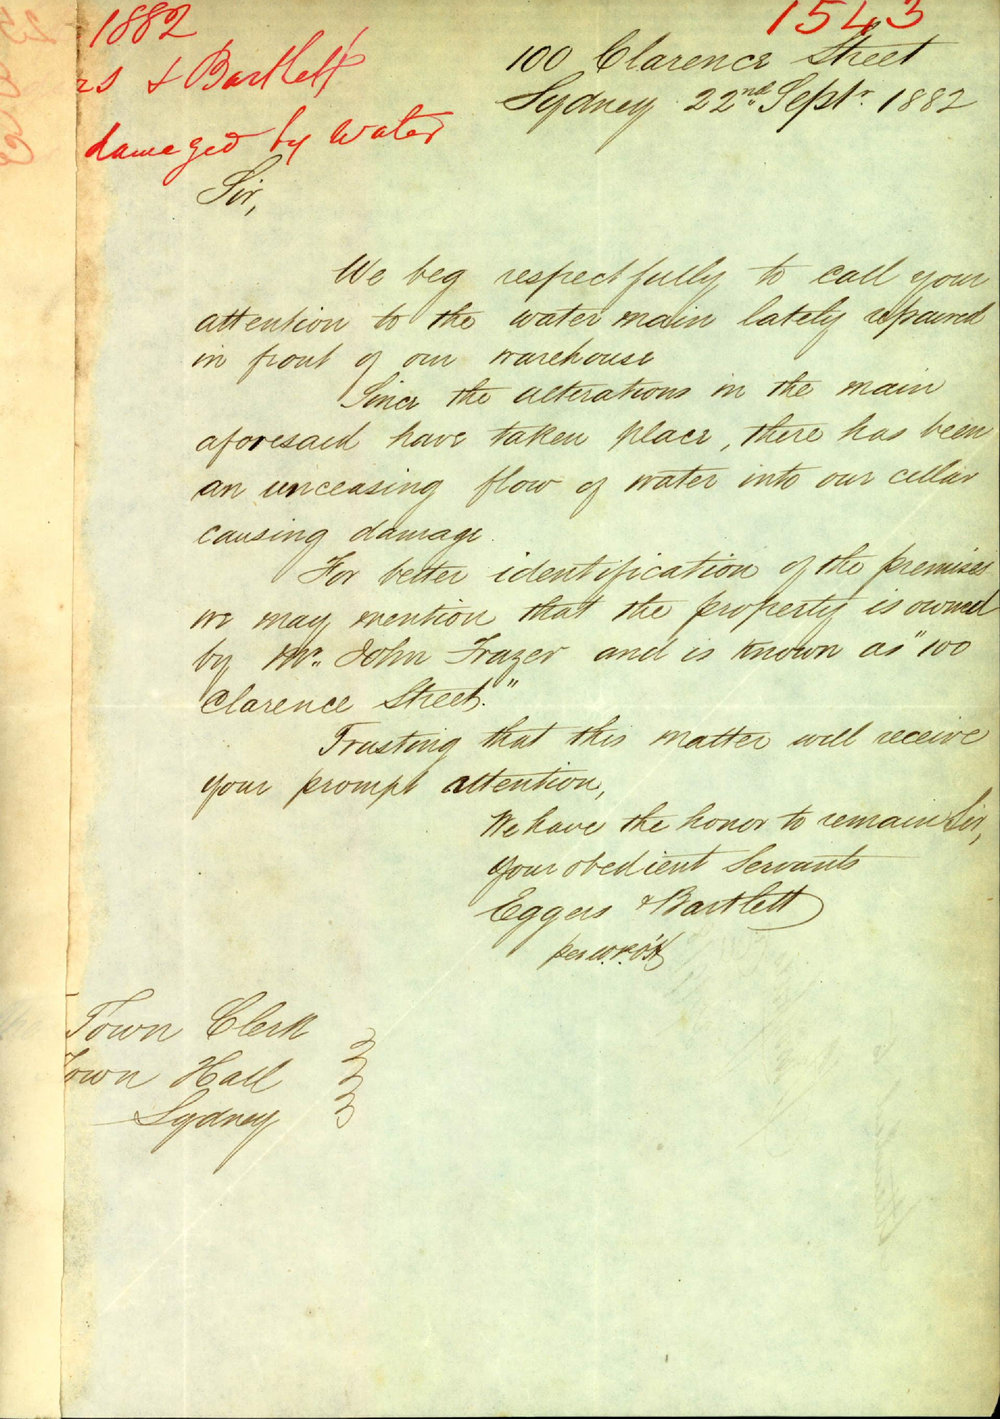 1882
1543
rs & Bartlett
damaged by Water
100 Clarence Street
Sydney 22nd Septr. 1882
Sir,
We beg respectfully to call your
attention to the water main lately repaired
in front of our warehouse
Since the alterations in the main
aforesaid have taken place, there has been
an unceasing flow of water into our cellar
causing damage.
For better identification of the premises
we may mention that the property is owned
by Mr. John Frazer and is known as "100
Clarence Street."
Trusting that this matter will receive
your prompt attention,
We have the honor to remain Sir,
Your obedient Servants
Eggers & Bartlett
per
Town Clerk
Town Hall
Sydney